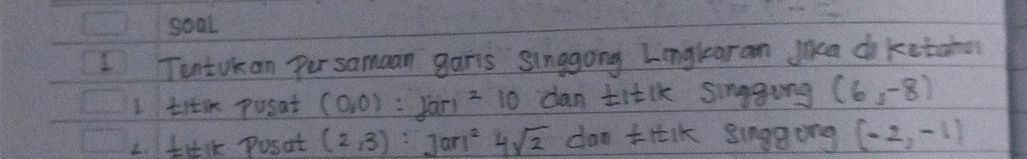 SOAL
1 Tentukan Persamaan garis Singgong Lingkaran jika di ketahui
1 titik pusat (0,0) : jari² 10 dan titik Singgung (6,-8)
2. titik Posat (2,3) : Jari² 4√2 dan titik Singgong (-2,-1)